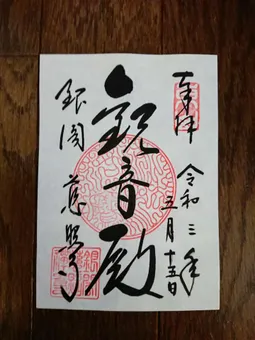 奉拝
令和三年
五月十五日
観音殿
銀閣 慈照寺